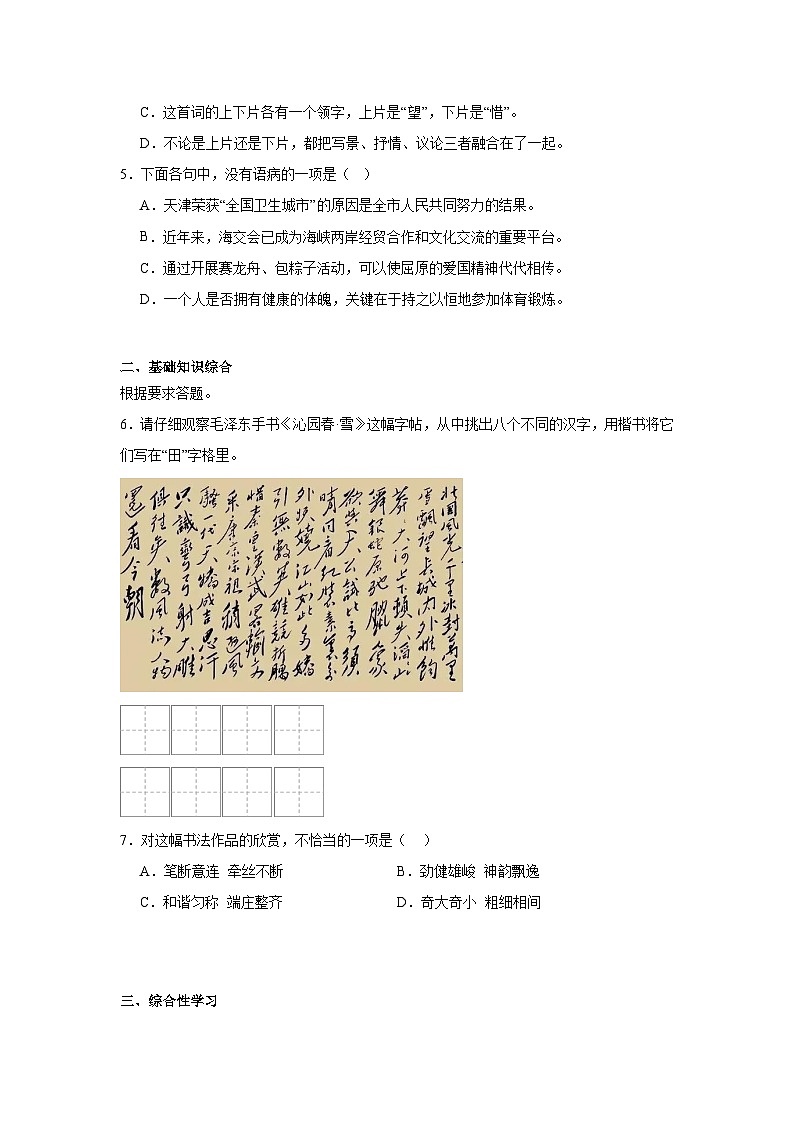 C．这首词的上下片各有一个领字，上片是“望”，下片是“惜”。
D．不论是上片还是下片，都把写景、抒情、议论三者融合在了一起。
5．下面各句中，没有语病的一项是（ ）
A．天津荣获“全国卫生城市”的原因是全市人民共同努力的结果。
B．近年来，海交会已成为海峡两岸经贸合作和文化交流的重要平台。
C．通过开展赛龙舟、包粽子活动，可以使屈原的爱国精神代代相传。
D．一个人是否拥有健康的体魄，关键在于持之以恒地参加体育锻炼。
二、基础知识综合
根据要求答题。
6．请仔细观察毛泽东手书《沁园春·雪》这幅字帖，从中挑出八个不同的汉字，用楷书将它
们写在“田”字格里。
北國风光千里冰封萬里
雪飄望长城内外惟餘
莽莽大河上下頓失滔滔山
舞银蛇原馳臘象
欲與天公試比高須
晴日看红裝素裹分
外妖嬈江山如此多嬌
引無數英雄競折腰
惜秦皇漢武略輸文
采唐宗宋祖稍遜風
騷一代天嬌成吉思汗
只識彎弓射大雕
俱往矣數風流人物
還看今朝
7．对这幅书法作品的欣赏，不恰当的一项是（ ）
A．笔断意连 牵丝不断 B．劲健雄峻 神韵飘逸
C．和谐匀称 端庄整齐 D．奇大奇小 粗细相间
三、综合性学习